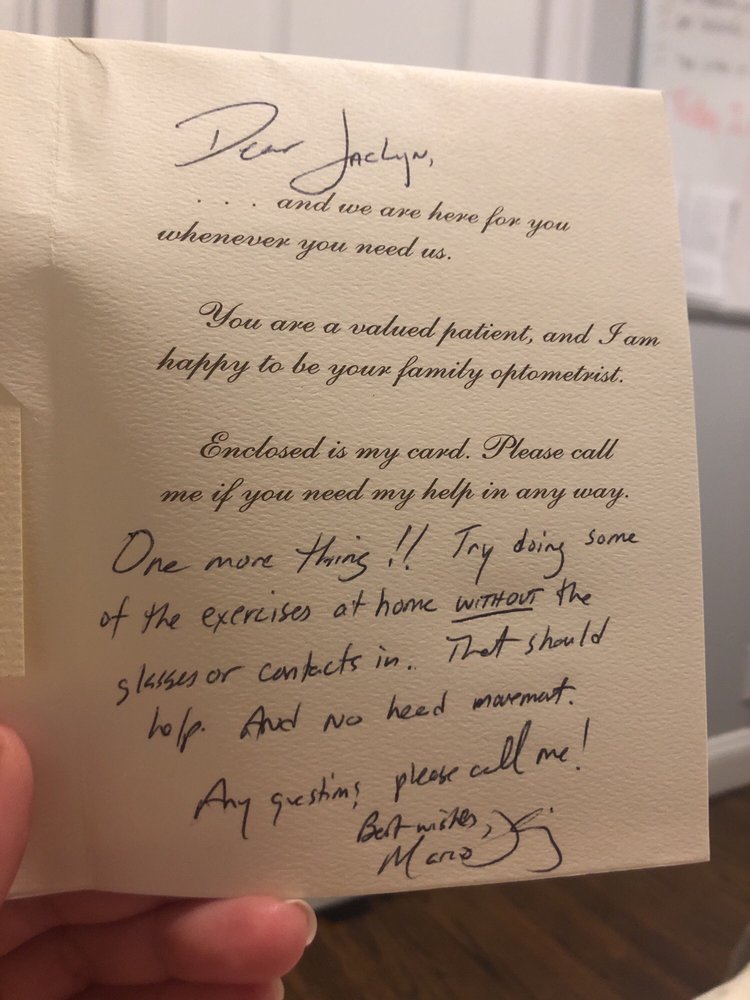 Dear Jaclyn,
. . . . and we are here for you
whenever you need us.
You are a valued patient, and I am
happy to be your family optometrist.
Enclosed is my card. Please call
me if you need my help in any way.
One more thing!! Try doing some
of the exercises at home WITHOUT the
glasses or contacts in.. That should
help. And no head movement.
Any questions, please call me!
Best wishes,
Mario